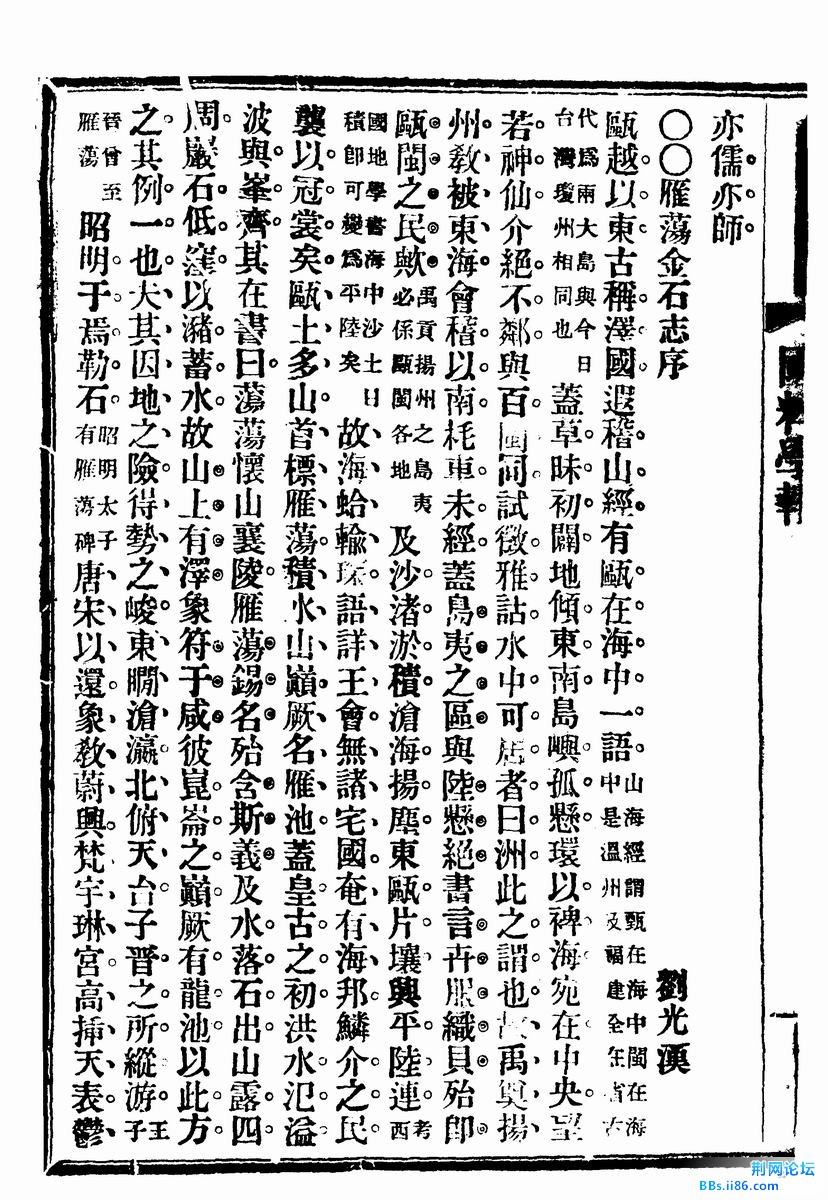 國粹學報
亦儒亦師。
〇〇雁蕩金石志序
劉光漢
甌越以東古稱澤國遐稽山經有甌在海中一語山海經謂甌在海中閩在海中是溫州及福建全在省古
代爲兩大島與今日台灣瓊州相同也蓋草昧初闢地傾東南島嶼孤懸環以裨海宛在中央望
若神仙介絕不鄰與百閩同試徵雅詁水中可居者曰洲此之謂也故禹奠揚
州敎被東海會稽以南秏車未經蓋島夷之區與陸懸絕書言卉服織貝殆卽
甌閩之民歟禹貢揚州之島夷必係甌閩各地及沙渚淤積滄海揚塵東甌片壤興平陸連考西
國地學書海中沙土日積卽可變爲平陸矣故海蛤輸琛語詳王會無諸宅國奄有海邦鱗介之民
襲以冠裳矣甌土多山首標雁蕩積水山巔厥名雁池蓋皇古之初洪水氾溢
波與峯齊其在書曰蕩蕩懷山襄陵雁蕩錫名殆含斯義及水落石出山露四
周巖石低窪以瀦蓄水故山上有澤象符于咸彼崑崙之巔厥有龍池以此方
之其例一也夫其因地之險得勢之峻東矙滄瀛北俯天台子晋之所縱游王子
晉曾至雁蕩昭明于焉勒石昭明太子有雁蕩碑唐宋以還象敎蔚興梵宇琳宮高揷天表鬱
荆网论坛
BBs.ii86.com